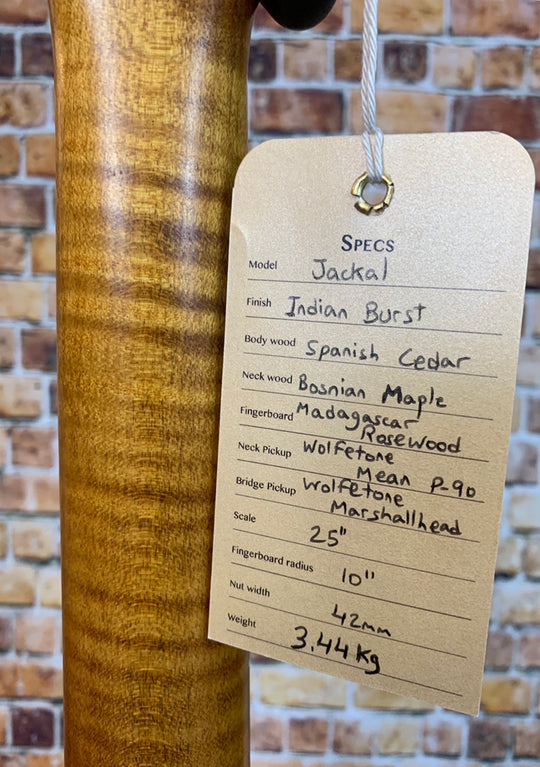 SPECS
Model Jackal
Finish Indian Burst
Body wood Spanish Cedar
Neck wood Bosnian Maple
Fingerboard Madagascar
Rosewood
Neck Pickup Wolfetone
Mean P-90
Bridge Pickup Wolfetone
Marshallhead
Scale 25"
Fingerboard radius 10"
Nut width 42mm
Weight 3.44Kg